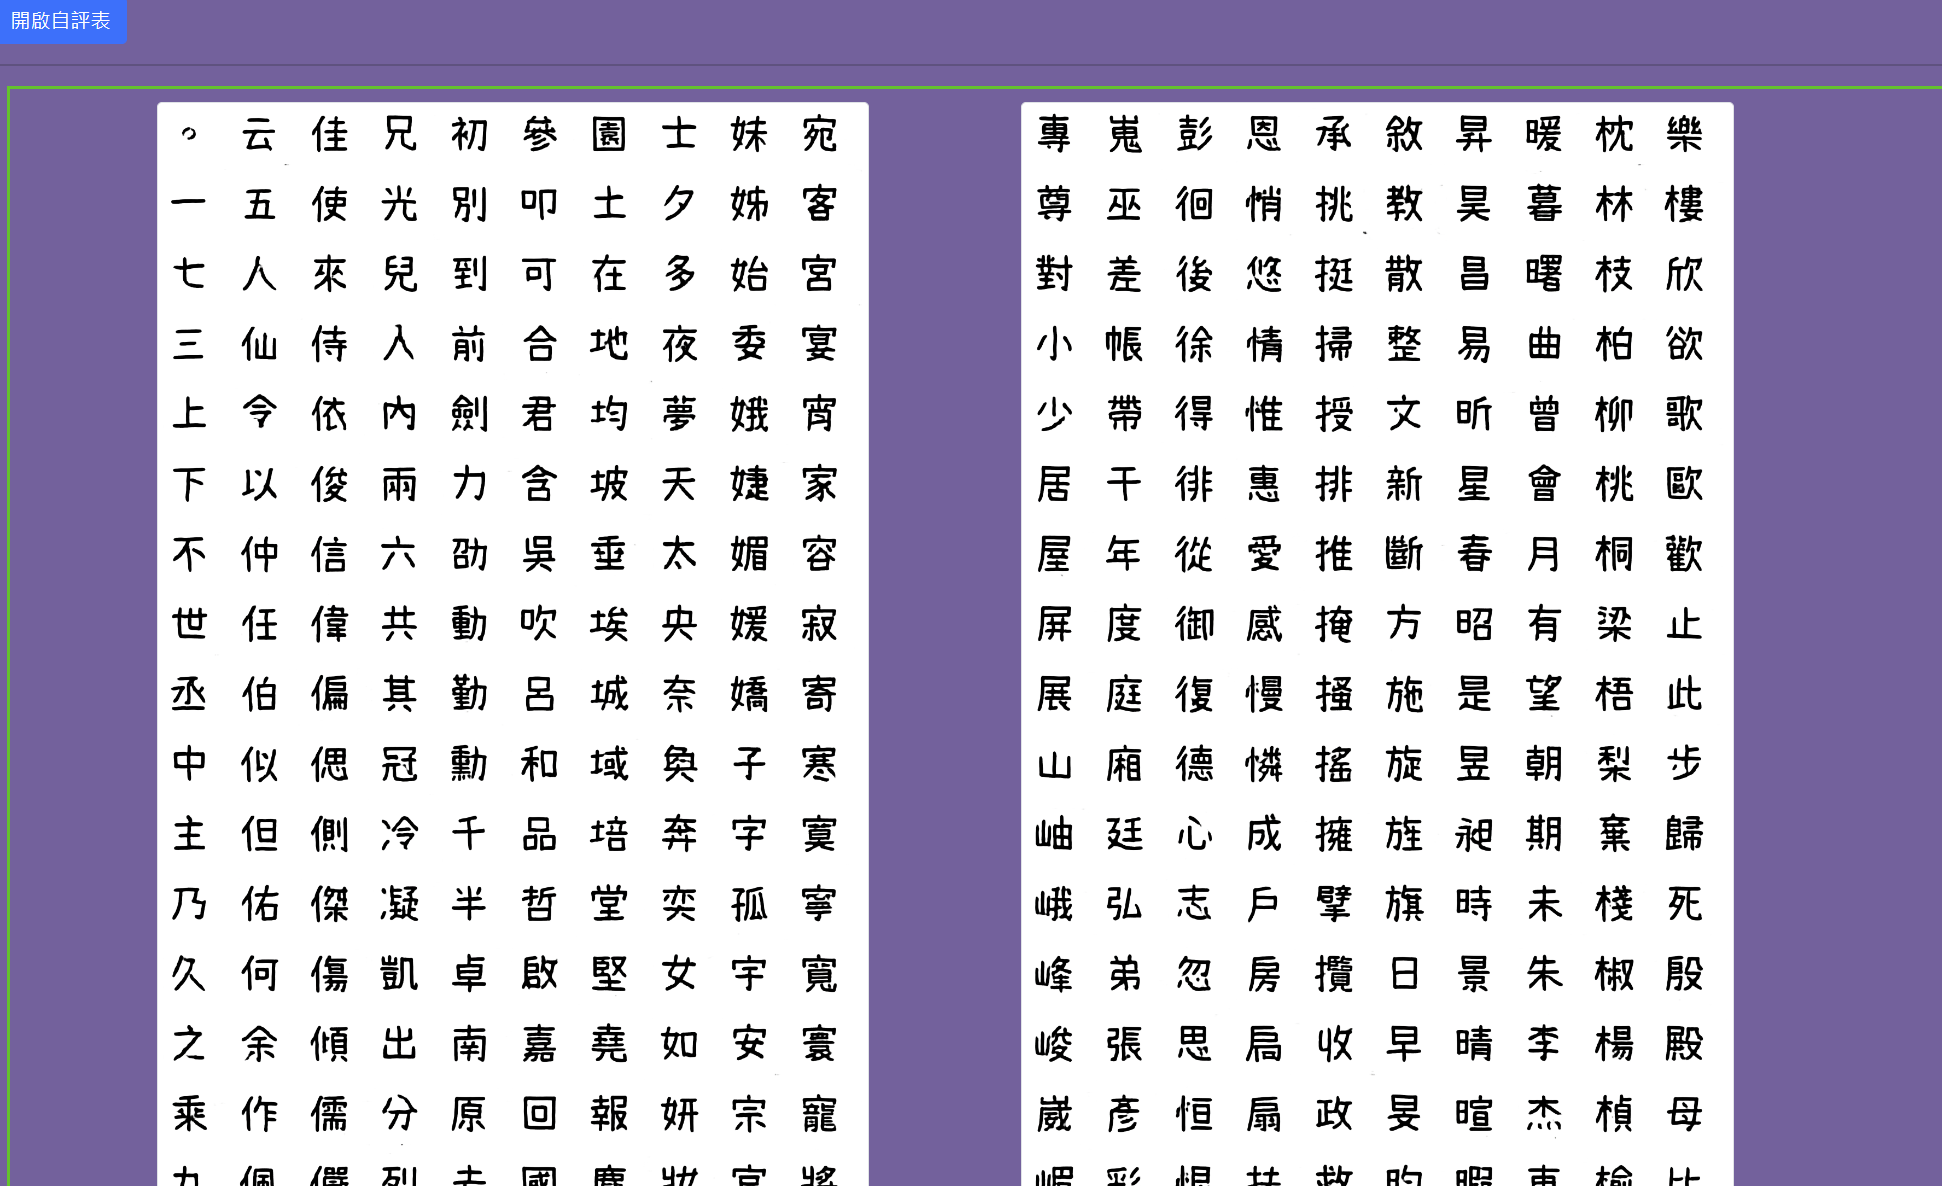 開啟自評表
。 云 佳 兄 初 參 園 士 妹 宛
一 五 使 光 別 叩 土 夕 姊 客
七 人 來 兒 到 可 在 多 始 宮
三 仙 侍 入 前 合 地 夜 委 宴
上 令 依 內 劍 君 均 夢 娥 宵
下 以 俊 兩 力 含 坡 天 婕 家
不 仲 信 六 劭 吳 垂 太 媚 容
世 任 偉 共 動 吹 埃 央 媛 寂
丞 伯 偏 其 勤 呂 城 奈 嬌 寄
中 似 偲 冠 勳 和 域 奐 子 寒
主 但 側 冷 千 品 培 奔 字 寞
乃 佑 傑 凝 半 哲 堂 奕 孤 寧
久 何 傷 凱 卓 啟 堅 女 宇 寬
之 余 傾 出 南 嘉 堯 如 安 寰
乘 作 儒 分 原 回 報 妍 宗 寵
九 佩 儼 列 去 國 塵 妝 宜 將
專 嵬 彭 恩 承 敘 昇 暖 枕 樂
尊 巫 徊 悄 挑 教 昊 暮 林 樓
對 差 後 悠 挺 散 昌 曙 枝 欣
小 帳 徐 情 掃 整 易 曲 柏 欲
少 帶 得 惟 授 文 昕 曾 柳 歌
居 干 徘 惠 排 新 星 會 桃 歐
屋 年 從 愛 推 斷 春 月 桐 歡
屏 度 御 感 掩 方 昭 有 梁 止
展 庭 復 慢 搔 施 是 望 梧 此
山 廂 德 憐 搖 旋 昱 朝 梨 步
岫 廷 心 成 擁 旌 昶 期 棄 歸
峨 弘 志 戶 擘 旗 時 未 棧 死
峰 弟 忽 房 攬 日 景 朱 椒 殷
峻 張 思 扃 收 早 晴 李 楊 殿
崴 彥 恒 扇 政 旻 暄 杰 楨 母
嵋 彩 恨 扶 救 昀 暇 東 榆 比